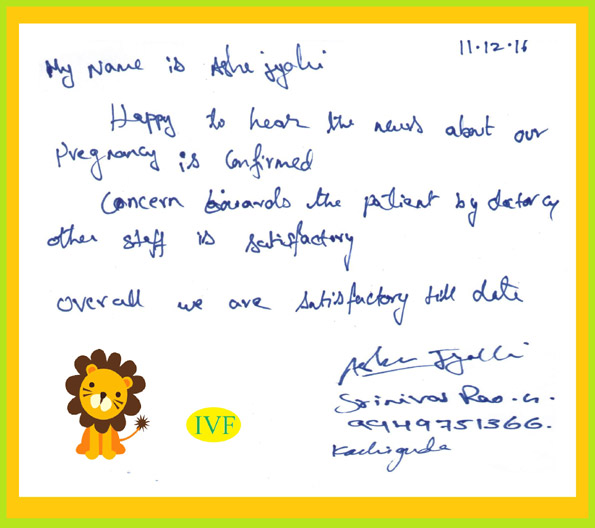 11.12.16
My Name is Asha jyothi
Happy to hear the news about our
Pregnancy is Confirmed
Concern towards the patient by doctor
other staff is satisfactory
overall we are satisfactory till date
Srinivas Rao. G.
IVF
Kachiguda